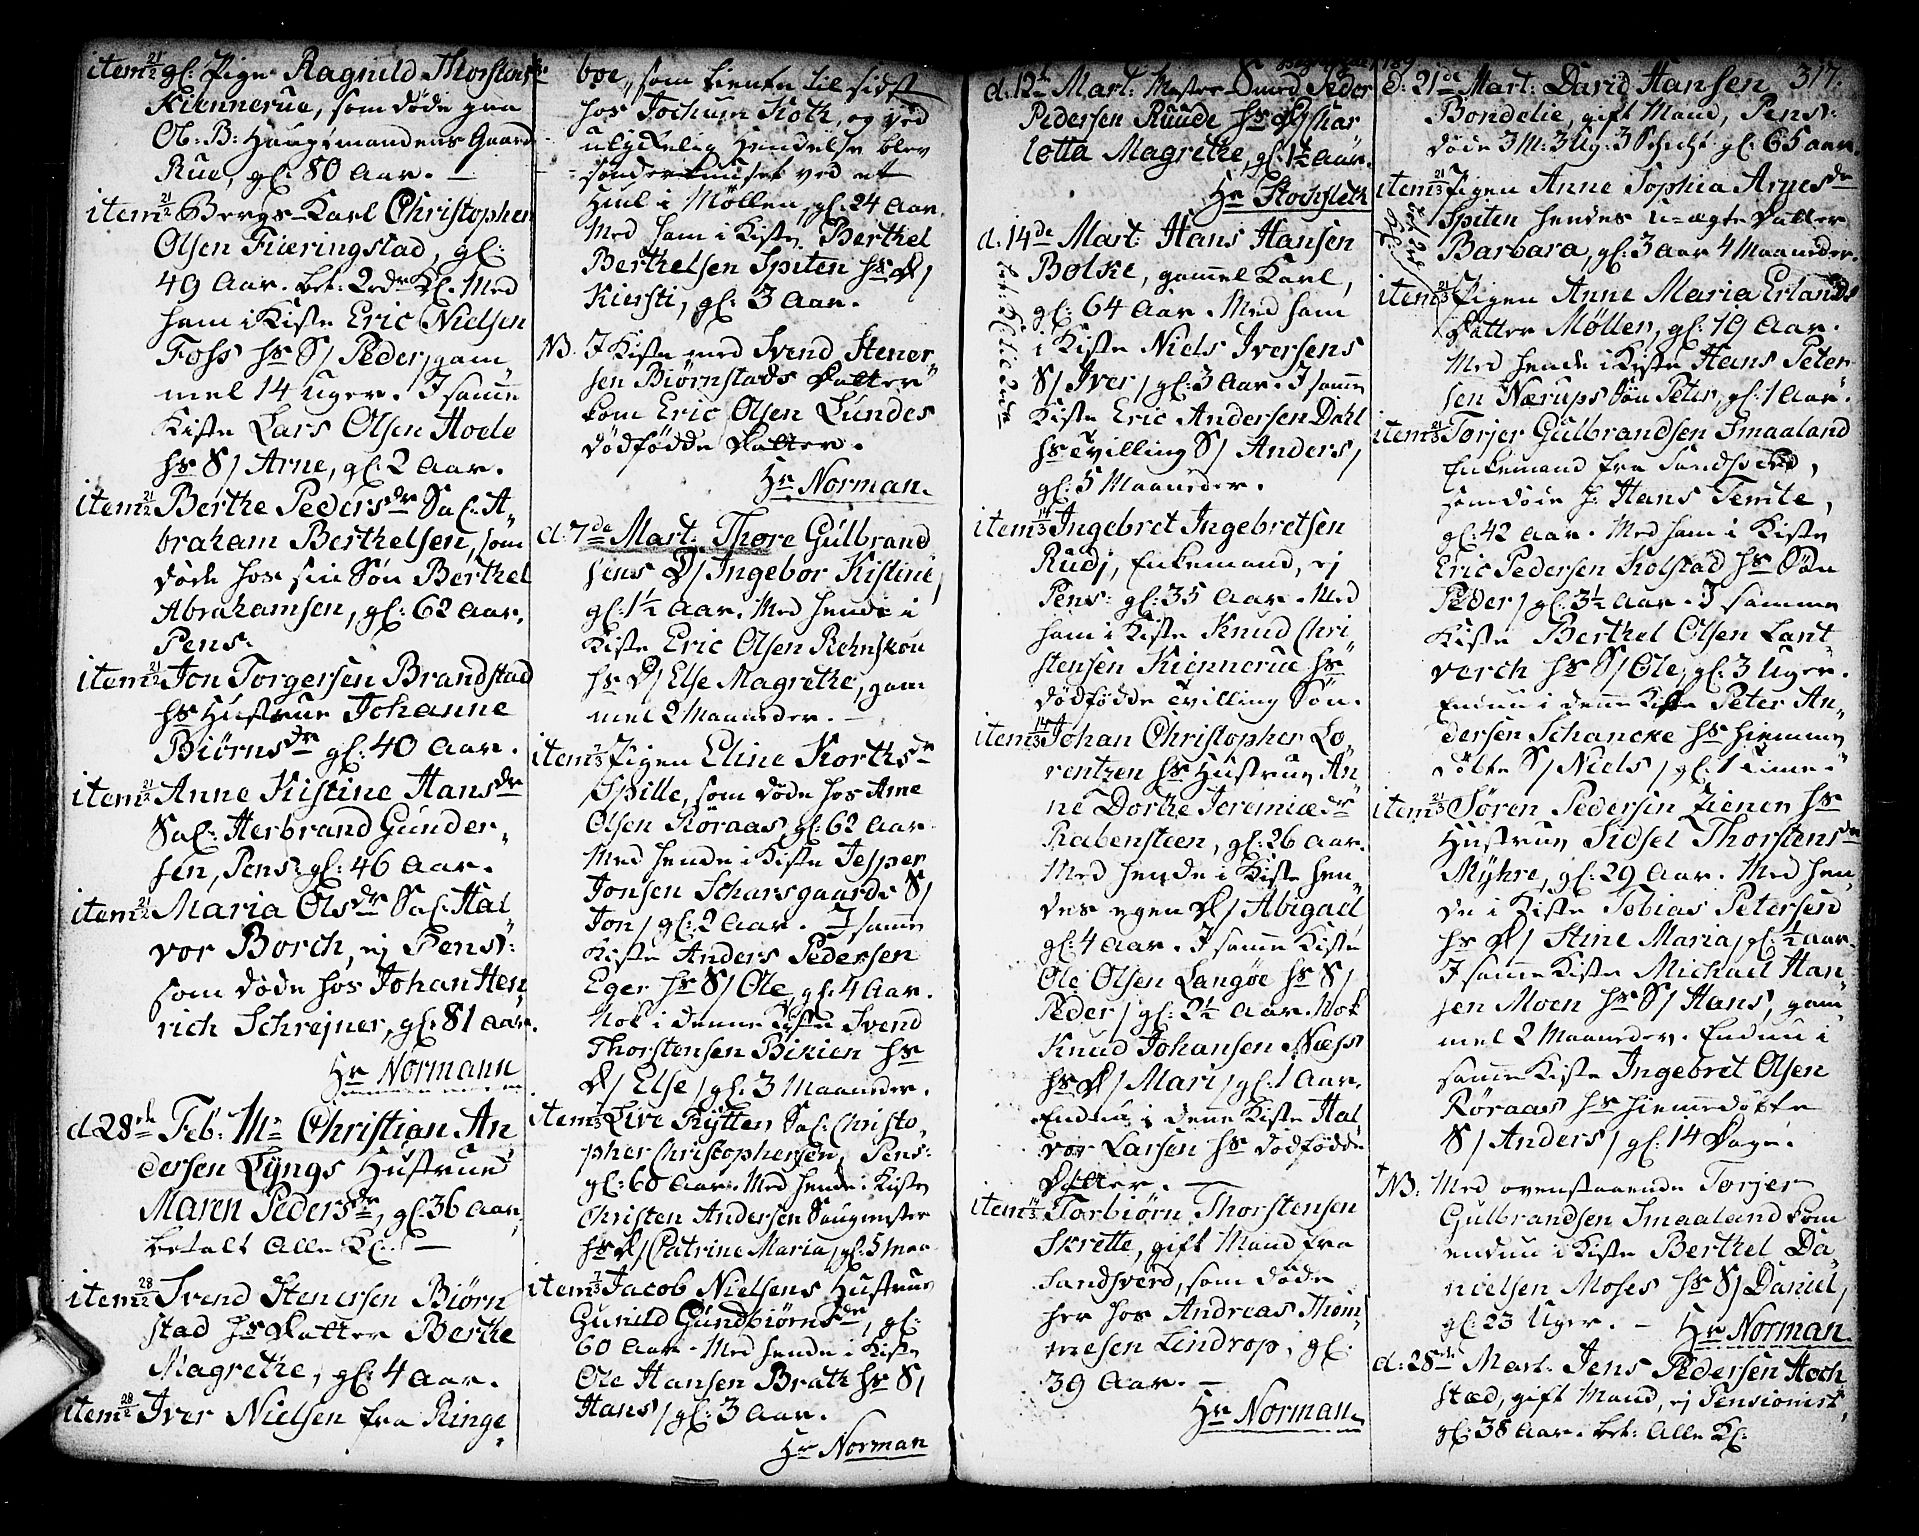 item 21/2 gl: Pige Ragnild Thorstens dr
Kiennerue, som døde paa
Ob: B: Hauptmandens Gaard
Rue, gl: 80 Aar. —
item 21/2 Bergs-Karl Christopher
Olsen Fieringstad, gl:
49 Aar. bet: 2de Kl. Med
ham i Kiste Eric Nielsen
Foss hs S/ Peder, gam
mel 14 Uger. I samme
Kiste Lars Olsen Hoele
hs S/ Arne, gl: 2 Aar.
item 21/2 Berthe Peders dr Sal: A„
braham Berthelsen, som
døde hos sin Søn Berthel
Abrahamsen, gl: 62 Aar.
Pens:
item 21/2 Jon Torgersen Brandstad
hs Hustrue Johanne
Biørns dr gl: 40 Aar.
item 21/2 Anne Kistine Hans dr
Sal: Herbrand Gunder„
sen, Pens: gl: 46 Aar.
item 21/2 Maria Ols dr Sal: Hal„
vor Borch, ej Pens:
som døde hos Johan Hen
rich Schrejner, gl: 81 Aar.
Hr Normann
d. 28de Feb: Mr Christian An„
dersen Lyngs Hustrue
Maren Peders dr, gl: 36 Aar,
betalt Alle Kl: —
item 28/2 Svend Stenersen Biørn
stad hs Datter Berthe
Magrethe, gl: 4 Aar.
item 28/2 Iver Nielsen fra Ringe„
boe, som tiente til sidst
hos Jochum Koth, og ved
ulykkelig Hendelse blev
sønderknuset ved et
Hiul i Møllen, gl: 24 Aar.
Med ham i Kiste Berthel
Berthelsen Spiten hs D/
Kiersti, gl: 3 Aar.
NB. I Kiste med Svend Stener„
sen Biørnstads Datter
kom Eric Olsen Lundes
dødfødde Datter.
Hr Norman.
d: 7de Mart: Thore Gulbrand
sens D/ Ingebor Kistine,
gl: 1½ Aar. Med hende i
Kiste Eric Olsen Rehnskou
hs D/ Else Magrethe, gam
mel 2 Maaneder. —
item 7/3 Pigen Eline Korths dr
Spille, som døde hos Arne
Olsen Røraas, gl: 62 Aar
Med hende i Kiste Jesper
Jonsen Scharsgaards S/
Jon/ gl: 2 Aar. I samme
Kiste Anders Pedersen
Eger hs S/ Ole, gl: 4 Aar.
Nok i denne Kiste Svend
Thorstensen Bikien hs
D/ Else/ gl: 3 Maaneder.
item 7/3 Live Frytten Sal: Christo„
pher Christophersen, Pens:
gl: 60 Aar. Med hende i Kiste
Christen Andersen Saugmester
hs D/ Catrine Maria, gl: 5 Maa
item 7/3 Jacob Nielsens Hustrue
Gunild Gundbiørns dr, gl:
60 Aar. Med hende i Kiste
Ole Hansen Brath hs S/
Hans/ gl: 3 Aar.
Hr Norman
d. 12te Mart: Mester Smed Peder
Pedersen Ruude hs D/ Char
lotta Magrethe, gl: 1½ Aar.
Hr Stochfleth
d. 14de Mart: Hans Hansen
Bolke, gammel Karl,
gl: 64 Aar. Med ham
i Kiste Niels Iversens
S/ Iver/ gl: 3 Aar. I samme
Kiste Eric Andersen Dahl
hs tvilling S/ Anders/
gl: 5 Maaneder.
item 14/3 Ingebret Ingebretsen
Rudj, Enkemand, ej
Pens: gl: 35 Aar. Med
ham i Kiste Knud Chri„
stensen Kiennerue hs
dødfødde tvilling Søn.
item 14/3 Johan Christopher Lo„
rentzen hs Hustrue An„
ne Dorthe Jeremiæ dr
Rabensteen, gl: 26 Aar.
Med hende i Kiste hen„
des egen D/ Abigael
gl: 4 Aar. I samme Kiste
Ole Olsen Langøe hs S/
Peder/ gl: 2½ Aar. Nok
Knud Johansen Næss
hs D/ Mari/ gl: 1 Aar.
Endnu i denne Kiste Hal
vor Larsen hs dødfødde
Datter. —
item 14/3 Torbiørn Thorstensen
Skrette, gift Mand fra
Sandsverd, som døde
her hos Andreas Thom„
mesen Lindrop, gl:
39 Aar. —
Hr Norman.
317.
d: 21de Mart: David Hansen
Bondelie, gift Mand, Pens:
døde 3 M: 3 Ug: 3 Schicht gl: 65 Aar.
item 21/3 Pigen Anne Sophia Arnes dr
Spiten hendes U-ægte Datter
Barbara, gl: 3 Aar 4 Maaneder.
item 21/3 Pigen Anne Maria Erlands
Datter Møller, gl: 19 Aar.
Med hende i Kiste Hans Peter
sen Nærups Søn Peter, gl: 1 Aar.
item 21/3 Torjer Gulbrandsen Smaaland
Enkemand fra Sandsverd,
som døde h: Hans Temte,
gl: 42 Aar. Med ham i Kiste
Eric Pedersen Kolstad hs Søn
Peder/ gl: 3½ Aar. I samme
Kiste Berthel Olsen Lant„
verch hs S/ Ole, gl: 3 Uger.
Endnu i denne Kiste Peter An„
dersen Schancke hs hiemme
døbte S/ Niels/ gl: 1 Time.
item 21/3 Søren Pedersen Zienen hs
Hustrue Sidsel Thorstens dr
Myhre, gl: 29 Aar. Med hen„
de i Kiste Tobias Petersen
hs D/ Stine Maria/ gl: ½ Aar.
I samme Kiste Michael Han„
sen Moen hs S/ Hans, gam„
mel 2 Maaneder. Endnu i
samme Kiste Ingebret Olsen
Røraas hs hiemmedøbte
S/ Anders/ gl: 14 Dage.
NB. Med ovenstaaende Torjer
Gulbrandsen Smaaland kom
endnu i Kiste Berthel Da„
nielsen Moses hs S/ Daniel,
gl: 23 Uger. —
Hr Norman.
d: 28de Mart: Jens Pedersen Hoch
stæd, gift Mand, ej Pensionist
gl: 38 Aar. bet: Alle Kl: